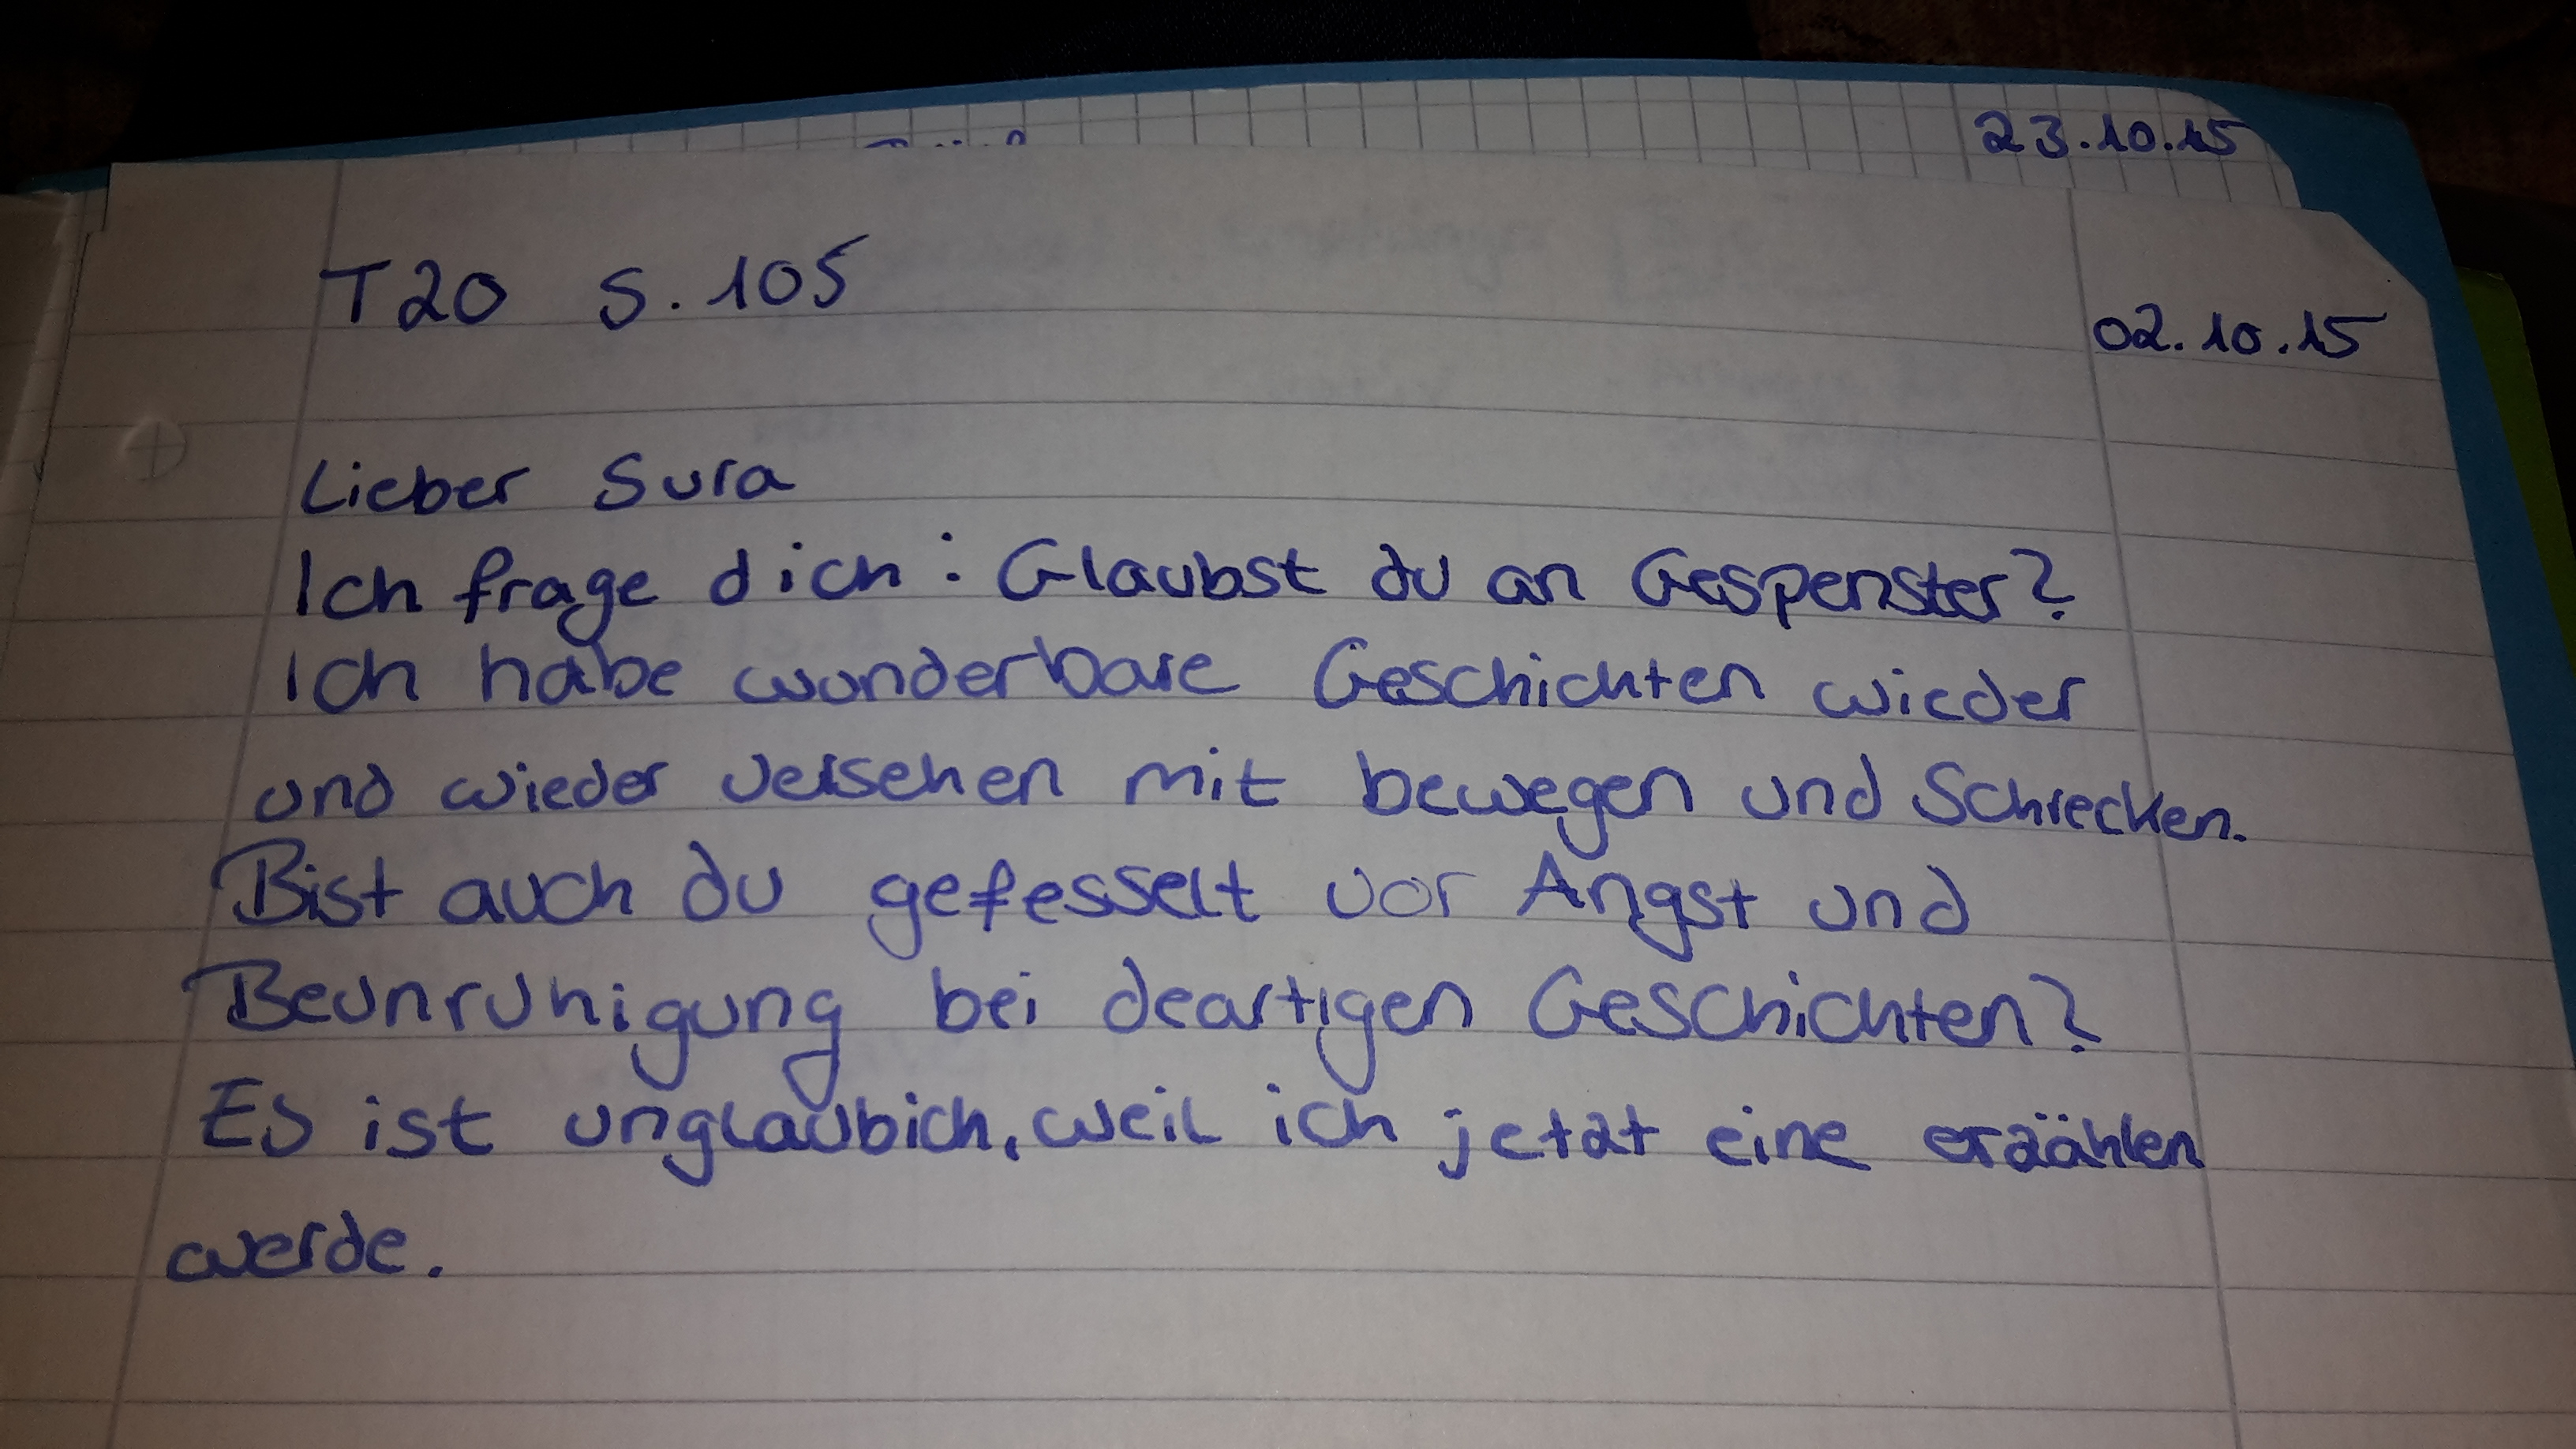 23.10.15
T20 S. 105
02.10.15
Lieber Sura
Ich frage dich: Glaubst du an Gespenster?
Ich habe wunderbare Geschichten wieder
und wieder versehen mit bewegen und Schrecken.
Bist auch du gefesselt vor Angst und
Beunruhigung bei deartigen Geschichten?
Es ist unglaubich, weil ich jetzt eine erzählen
werde.